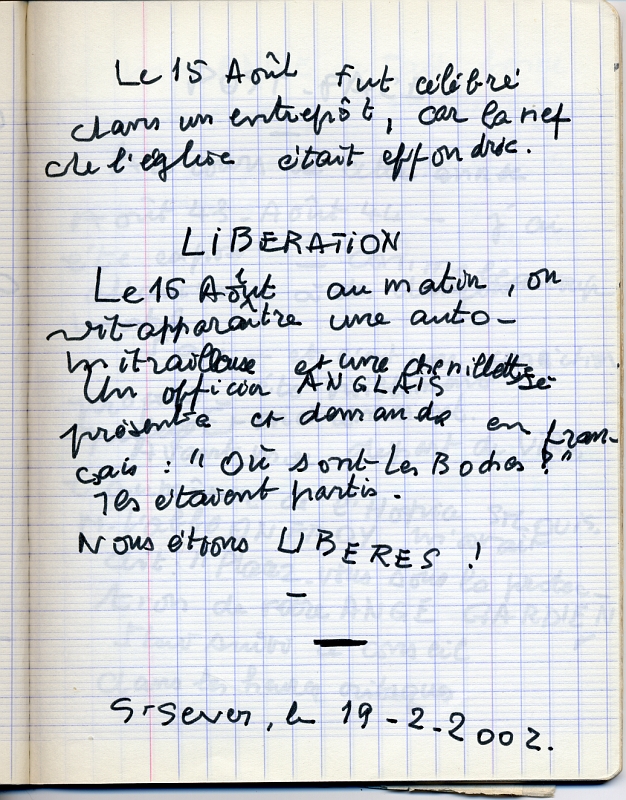 Le 15 Août fut célébré
dans un entrepôt, car la nef
de l'église était effondrée.
LIBERATION
Le 16 Août au matin, on
vit apparaître une auto-
mitrailleuse et une chenillette
Un officier ANGLAIS se
présente et demande en fran-
çais : "Où sont les Boches ?"
Ils étaient partis.
Nous étions LIBERES !
St-Sever, le 19-2-2002.